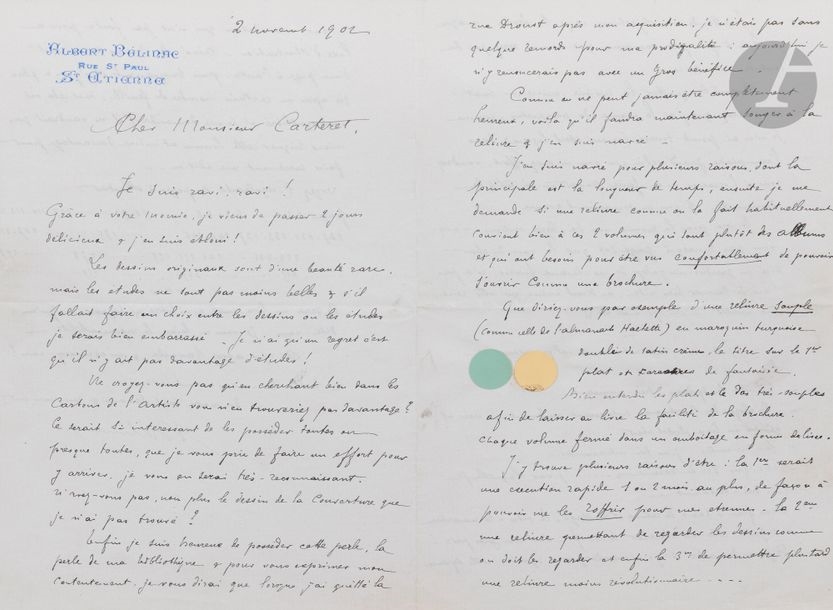 2 novemb 1902
ALBERT BÉLINAC
RUE ST PAUL
ST ETIENNE
Cher Monsieur Carteret,
Je suis ravi, ravi !
Grâce à votre , je viens de passer 2 jours
délicieux & j'en suis ébloui !
Les dessins originaux sont d'une beauté rare,
mais les études ne sont pas moins belles & s'il
fallait faire un choix entre les dessins ou les études
je serais bien embarrassé. Je n'ai qu'un regret c'est
qu'il n'y ait pas davantage d'études !
Ne croyez-vous pas qu'en cherchant bien dans les
Cartons de l'Artiste vous n'en trouveriez pas davantage ?
Ce serait si intéressant de les posséder toutes ou
presque toutes, que je vous prie de faire un effort pour
y arriver, je vous en serai très-reconnaissant.
N'avez-vous pas, non plus le dessin de la Couverture que
je n'ai pas trouvé ?
Enfin je suis heureux de posséder cette perle, la
perle de ma bibliothèque & pour vous exprimer mon
contentement, je vous dirai que lorsque j'ai quitté la
rue Drouot après mon acquisition, je n'étais pas sans
quelque remords pour ma prodigalité : aujourd'hui je
n'y renoncerais pas avec un gros bénéfice.
Comme on ne peut jamais être complètement
heureux, voilà qu'il faudra maintenant songer à la
reliure & j'en suis navré.
J'en suis navré pour plusieurs raisons, dont la
principale est la longueur de temps, ensuite je me
demande si une reliure comme on la fait habituellement
convient bien à ces 2 volumes qui sont plutôt des albums
et qui ont besoin pour être vus confortablement de pouvoir
s'ouvrir comme une brochure.
Que diriez-vous par exemple d'une reliure souple
(comme celle de l'almanach Hachette) en maroquin turquoise
doublée de satin crème, le titre sur le 1er
plat en caractères de fantaisie.
Bien entendu les plats et le dos très-souples
afin de laisser au livre la facilité de la brochure.
Chaque volume fermé dans un emboitage en forme de livre.
J'y trouve plusieurs raisons d'être : la 1ère serait
une exécution rapide 1 ou 2 mois au plus, de façon à
pouvoir me les offrir pour mes etrennes. La 2em
une reliure permettant de regarder les dessins comme
on doit les regarder et enfin la 3me de permettre plustard
une reliure moins révolutionnaire - - - -